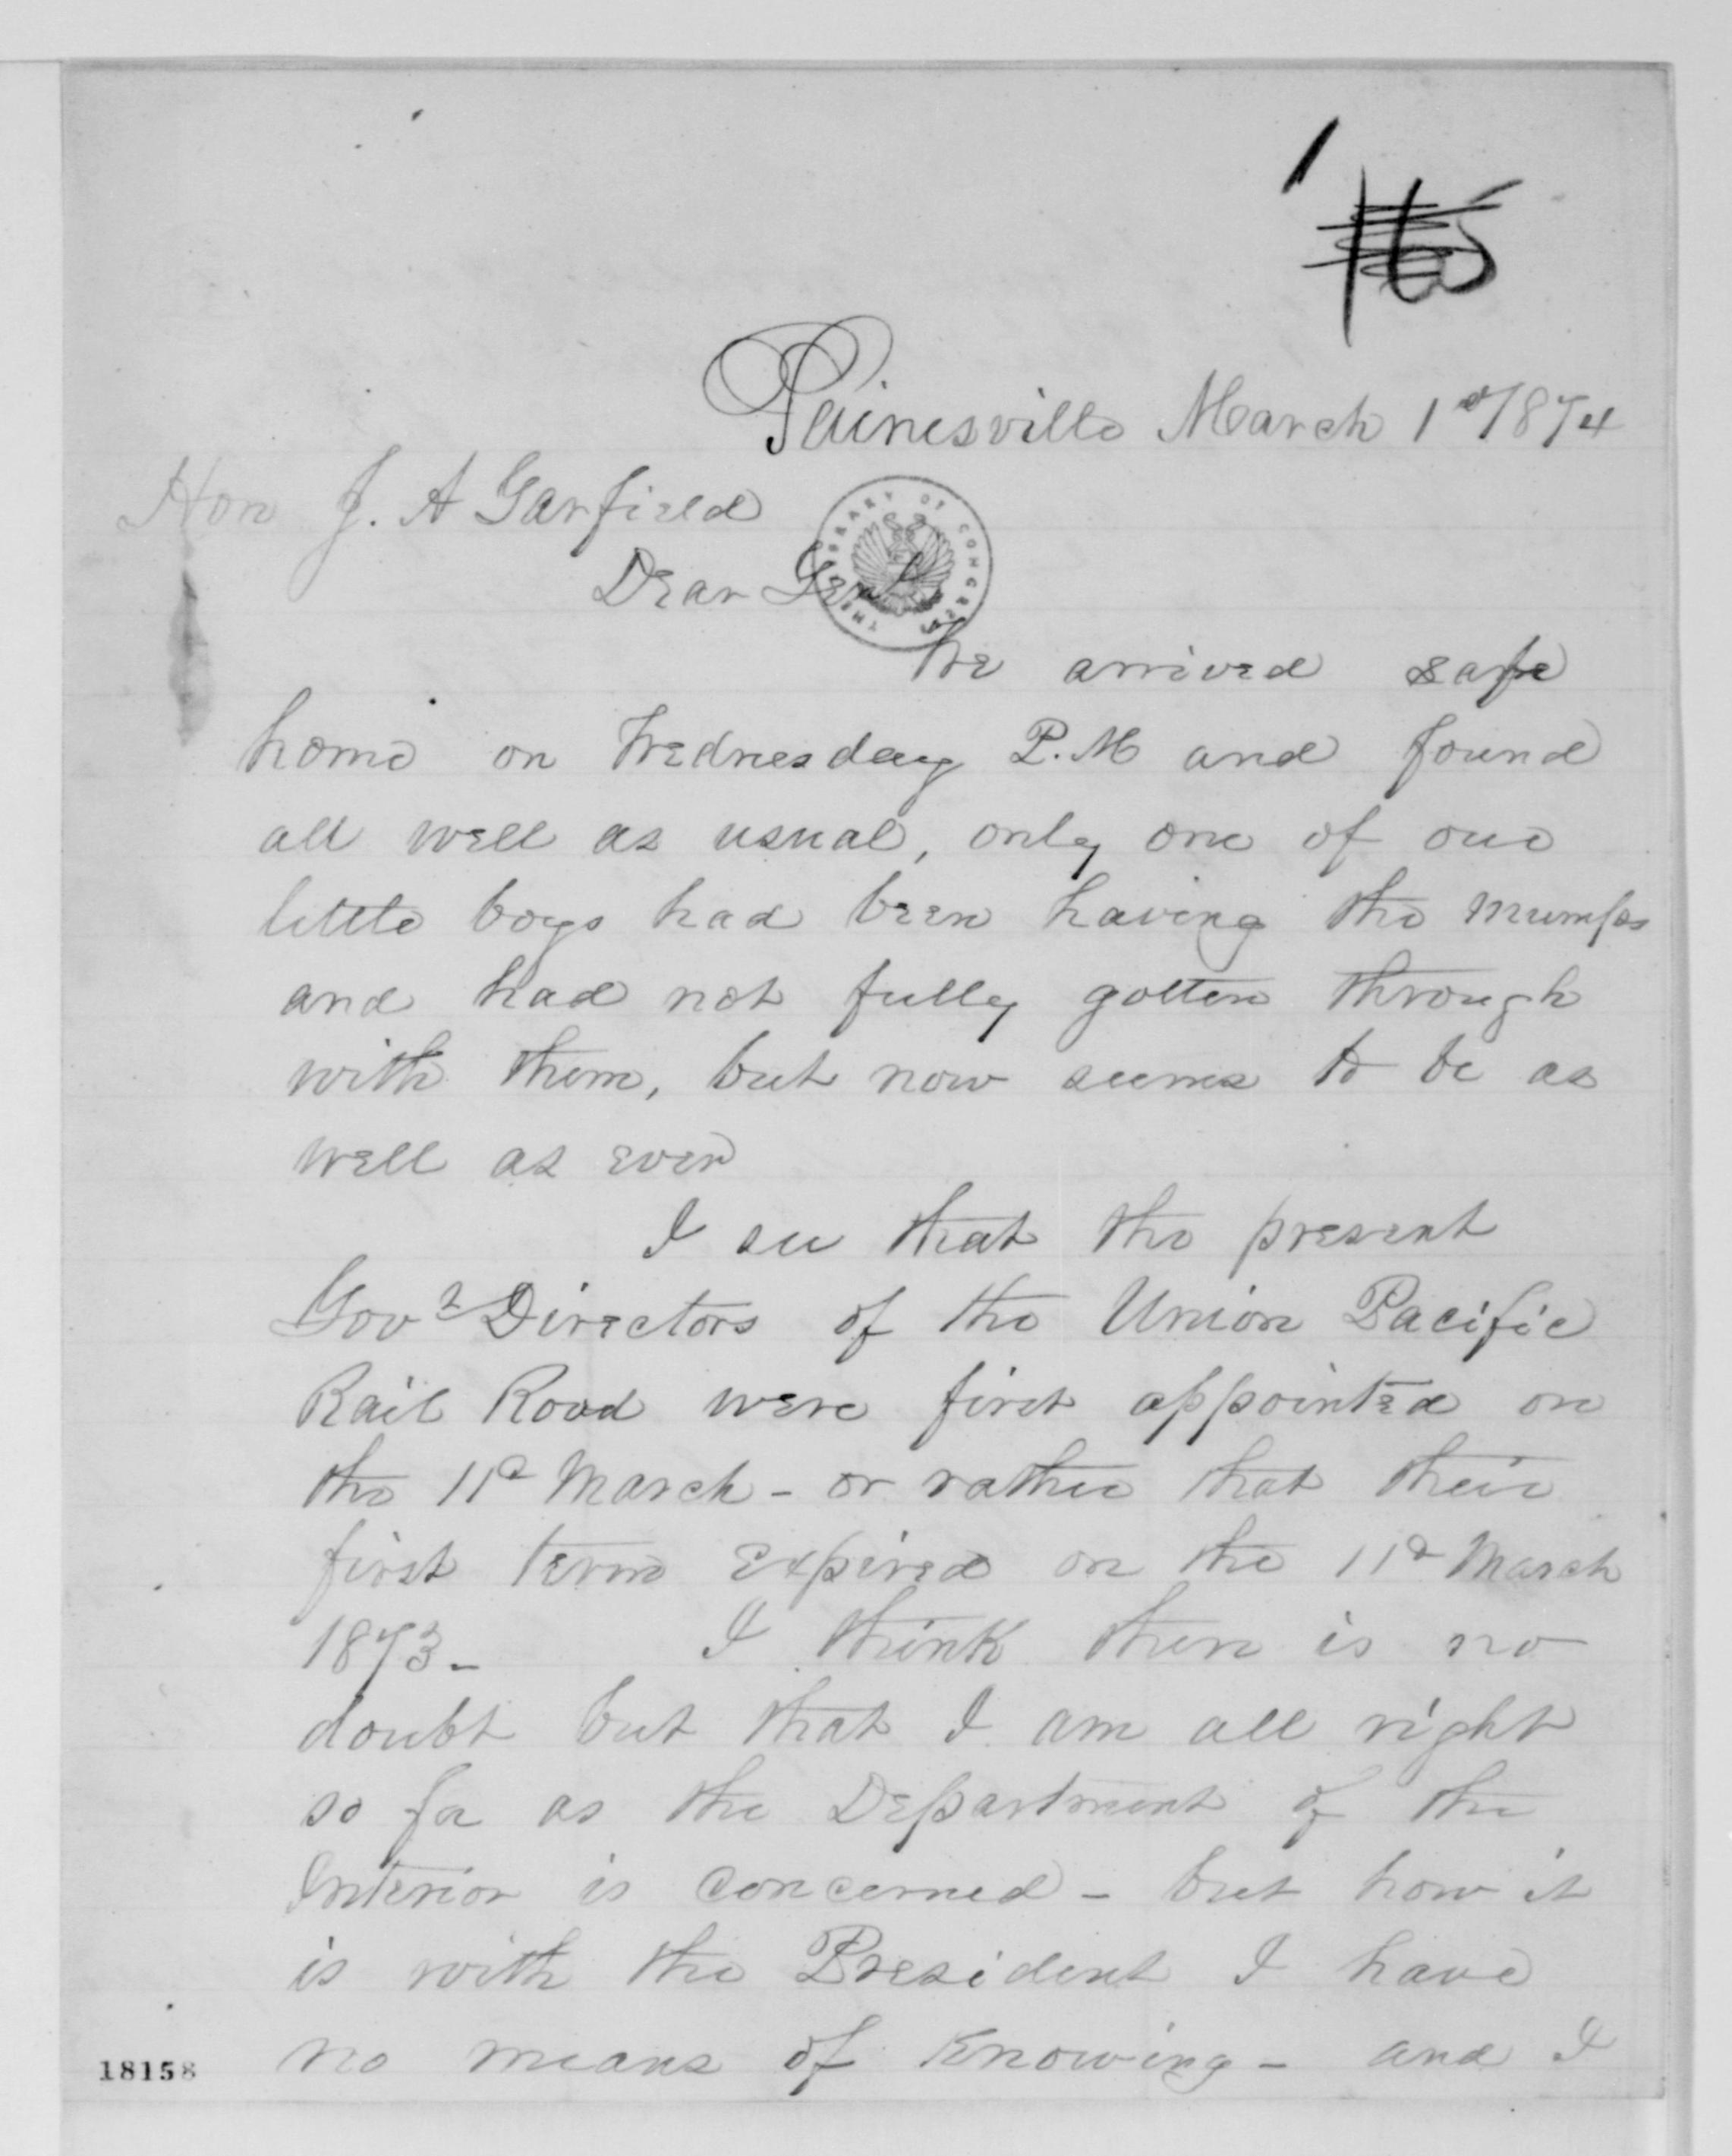 1
165
Painesville March 1st 1874
Hon J. A Garfield
THE LIBRARY OF CONGRESS
Dear Genl
We arrived safe
home on Wednesday P.M and found
all well as usual, only one of our
little boys had been having the mumps
and had not fully gotten through
with them, but now seems to be as
well as ever
I see that the present
Govt Directors of the Union Pacific
Rail Road were first appointed on
the 11th March - or rather that their
first term expired on the 11th March
1873 - I think there is no
doubt but that I am all right
so far as the Department of the
Interior is concerned - but how it
is with the President I have
no means of knowing - and I
18158